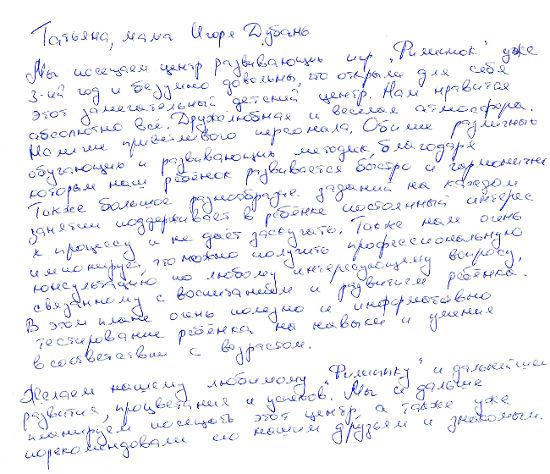 Татьяна, мама Игоря Дубань
Мы посещаем центр развивающих игр "Филиппок" уже
3-ий год и безумно довольны, что открыли для себя
этот замечательный детский центр. Нам нравится
абсолютно всё. Дружелюбная и веселая атмосфера.
Наличие приветливого персонала. Обилие различных
обучающих и развивающих методик, благодаря
которым наш ребёнок развивается быстро и гармонично
Также большое разнообразие заданий на каждом
занятии поддерживает в ребёнке постоянный интерес
к процессу и не даёт заскучать. Также нам очень
импонирует, что можно получить профессиональную
консультацию по любому интересующему вопросу,
связанному с воспитанием и развитием ребёнка.
В этом плане очень полезно и информативно
тестирование ребёнка на навыки и умения
в соответствии с возрастом.
Желаем нашему любимому "Филиппку" и дальнейшего
развития, процветания и успехов. Мы и дальше
планируем посещать этот центр, а также уже
порекомендовали его нашим друзьям и знакомым.